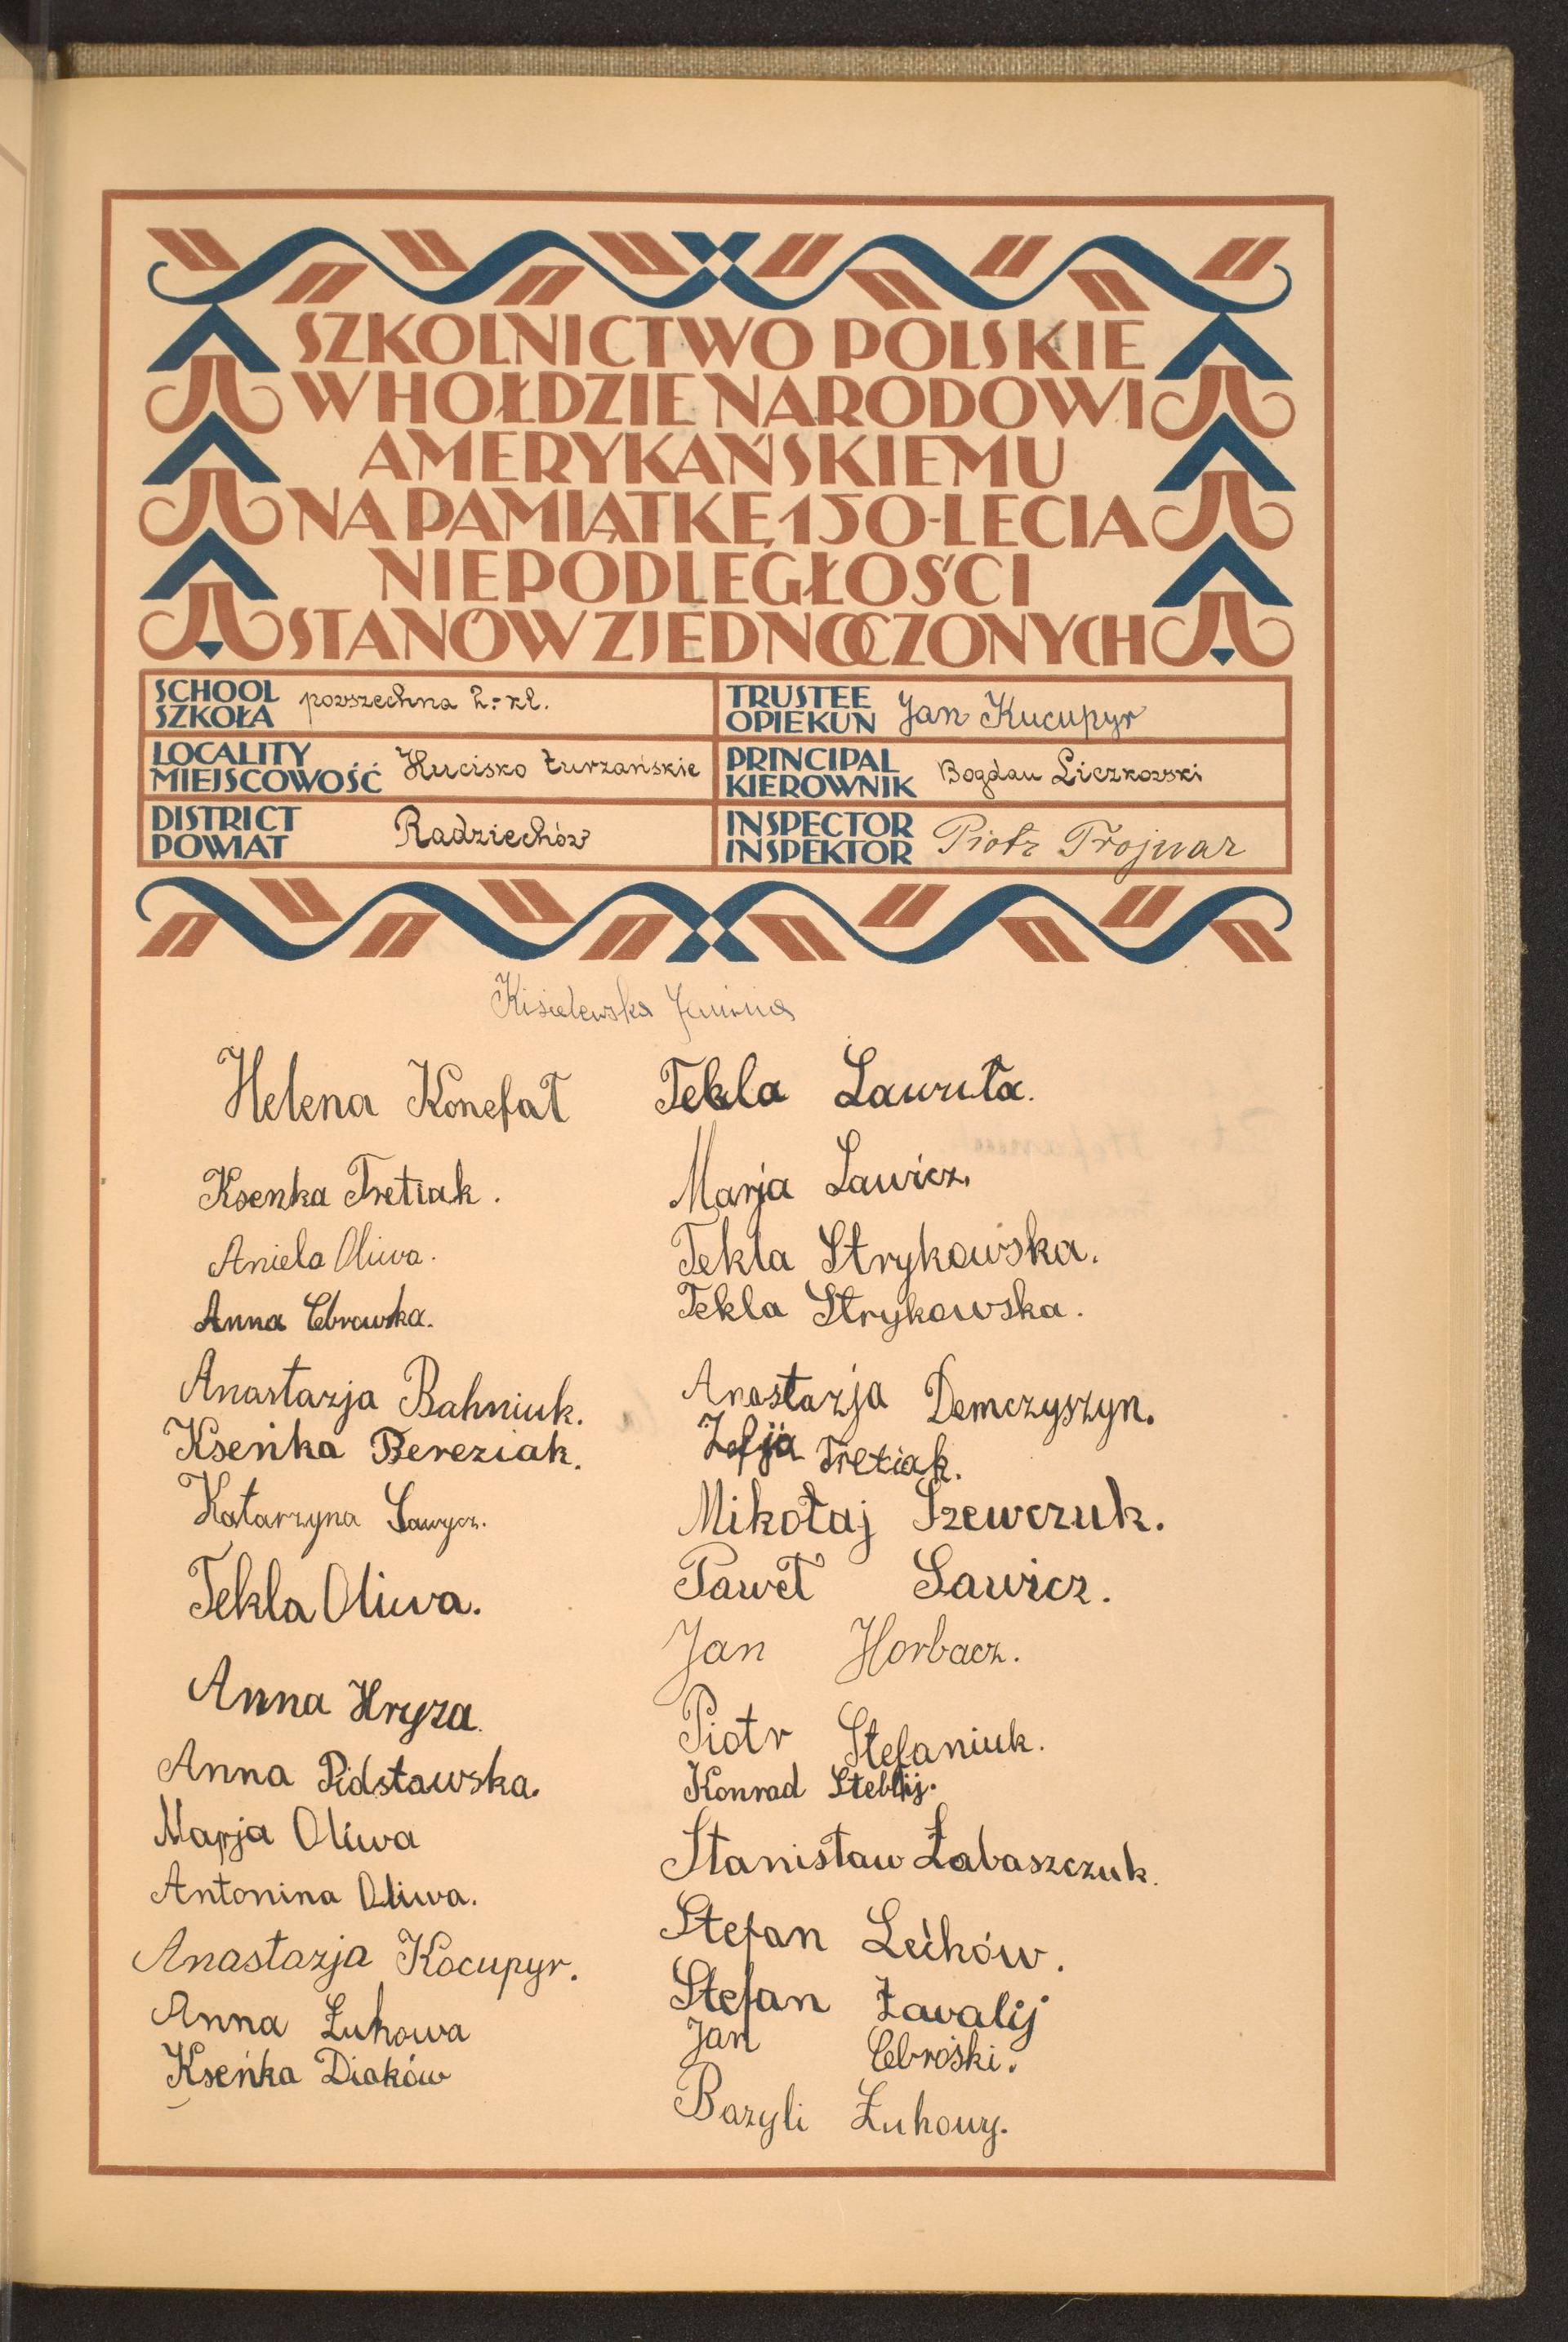 SZKOLNICTWO POLSKIE
W HOŁDZIE NARODOWI
AMERYKAŃSKIEMU
NA PAMIĄTKĘ 150-LECIA
NIEPODLEGŁOŚCI
STANÓW ZJEDNOCZONYCH
SCHOOL
SZKOŁA powszechna 2-kl.
TRUSTEE
OPIEKUN Jan Kucupyr
LOCALITY
MIEJSCOWOŚĆ Hucisko Turzańskie
PRINCIPAL
KIEROWNIK Bogdan Liczkowski
DISTRICT
POWIAT Radziechów
INSPECTOR
INSPEKTOR Piotr Trojnar
Kisielewska Janina
Helena Konefał
Ksenka Tretiak.
Aniela Oliwa.
Anna Cbrowska.
Anastazja Bahniuk.
Kseńka Bereziak.
Katarzyna Sawycz.
Tekla Oliwa.
Anna Hryza.
Anna Pidstawska.
Marja Oliwa
Antonina Oliwa.
Anastazja Kocupyr.
Anna Łuhowa
Kseńka Diaków
Tekla Ławruta.
Marja Sawicz.
Tekla Strykowska.
Tekla Strykowska.
Anastazja Demczyszyn.
Zofja Tretiak.
Mikołaj Szewczuk.
Paweł Sawicz.
Jan Horbacz.
Piotr Stefaniuk.
Konrad Steblij.
Stanisław Łabaszczuk.
Stefan Lechów.
Stefan Zawalij
Jan Cbroski.
Bazyli Łuhowy.